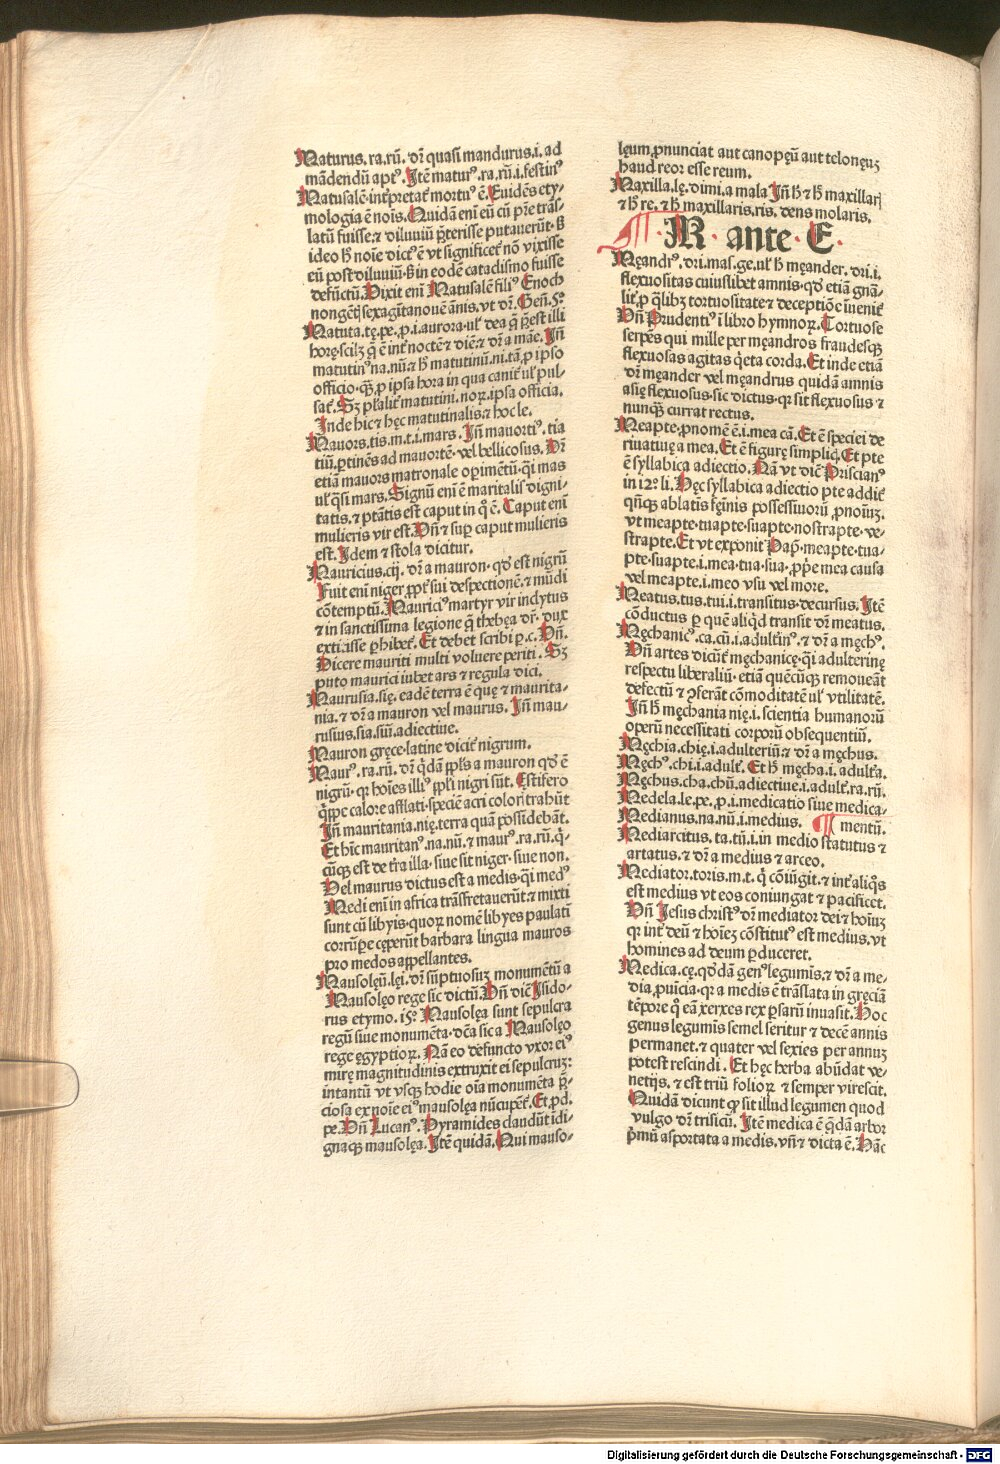 Maturus. ra. rū. dr̄ quasi mandurus. i. ad
mādendū aptꝰ. Itē maturꝰ. ra. rū. i. festinꝰ
Matusalē int̄pretat̄ mortuꝰ ē. Euidēs ety-
mologia ē noīs. Quidā enī eū cū pr̄e trās-
latū fuisse. ⁊ diluuiū p̄terisse putauerūt. ß
ideo h̄ noīe dictꝰ ē vt significet̄ nō vixisse
eū post diluuiū. ß in eodē catadismo fuisse
defūctū. Dixit enī Matusalē filiꝰ Enoch
nongēti sexagītanoue ānis. vt dr̄. Geñ. 5º
Matuta. tę. pe. ꝓ. i. aurora. ul̓ dea q̄ p̄est illi
horę. scilꝫ q̄ ē int̄ noctē ⁊ diē: ⁊ dr̄ a māe. Iñ
matutinꝰ na. nū. ⁊ h̄ matutinū. ni. tā ꝓ ipso
officio. qꝫ ꝓ ipsa hora in qua canit̄ ul̓ pul-
sat̄. Sꝫ pl̓alit̄ matutini. noꝝ. ipsa officia.
Inde hic ⁊ hęc matutinalis. ⁊ hoc le.
Mauors. tis. m. t. i. mars. Iñ mauortiꝰ. tia
tiū. ꝑtinēs ad mauortē. vel bellicosus. Dr̄
etiā mauors matronale oꝑimētū. qi mas
ul̓ qsi mars. Signū enī ē maritalis digni-
tatis. ⁊ ptātis est caput in q̊ ē. Caput enī
mulieris vir est. Vñ ⁊ suꝑ caput mulieris
est. Idem ⁊ stola dicitur.
Mauricius. cij. dr̄ a mauron. qd̓ est nigrū
Fuit enī niger ꝓpt̄ sui despectionē. ⁊ mūdi
cōtemptū. Mauriciꝰ martyr vir indytus
⁊ in sanctissima legione q̄ thebęa dr̄. dux
exti:isse ꝑhibet̄. Et debet scribi ꝑ. c. Vñ.
Dicere mauriti multi voluere periti. Sꝫ
puto maurici iubet ars ⁊ regula dici.
Maurusia. się. eadē terra ē quę ⁊ maurita-
nia. ⁊ dr̄ a mauron vel maurus. Iñ mau-
rusius. sia. siū. adiectiue.
Mauron gręce. latine dicit̄ nigrum.
Maurꝰ. ra. rū. dr̄ q̇dā ppl̓s a mauron qd̓ ē
nigrū. qꝛ hoīes illiꝰ ppl̓i nigri sūt. Estifero
q̇ppe calore afflati. speciē acri coloī trahūt
Iñ mauritania. nię. terra quā possidebāt.
Et hīc mauritanꝰ. na. nū. ⁊ maurꝰ. ra. rū. q̇-
cūqꝫ est de t̄ra illa. siue sit niger. siue non.
Vel maurus dictus est a medis. qi medꝰ
Medi enī in africa trāsfretauerūt. ⁊ mixti
sunt cū libyis. quoꝝ nomē libyes paulati
corrūpe cęperūt barbara lingua mauros
pro medos appellantes.
Mausolęū. lęi. dr̄ sūptuosuꝫ monumētū a
Mausolęo rege sic dictū. Vñ diē Isido-
rus etymo. 15º Mausolęa sunt sepulcra
regū siue monumēta. dc̄a sic a Mausolęo
rege ęgyptioꝝ. Nā eo defuncto vxor eiꝰ
mirę magnitudinis extruxit ei sepulcruꝫ:
intantū vt vsqꝫ hodie oīa monumēta p̄-
ciosa ex noīe eiꝰ mausolęa nūcupēt̄. Et ꝓd.
pe. Vñ Lucanꝰ. Pyramides claudūt idi-
gnacqꝫ mausolęa. Itē quidā. Qui mauso-
lęum ꝓnunciat aut canopęū aut telonęuꝫ
haud reor esse reum.
Maxilla. lę. dimi. a mala Iñ h̄ ⁊ h̄ maxillari
⁊ h̄ re. ⁊ h̄ maxillaris. ris. dens molaris.
M ante E.
Męandꝰ. dri. mas. ge. ul̓ h̄ męander. dri. i.
flexuositas cuiuslibet amnis. qd̓ etiā gnā-
lit̄ ꝓ q̄libꝫ tortuositate ⁊ deceptiōe īuenit̄
Vñ Prudentiꝰ ī libro hymnoꝝ. Tortuose
serpēs qui mille per męandros fraudesqꝫ
flexuosas agitas q̇eta corda. Et inde etiā
dr̄ męander vel męandrus quidā amnis
asię flexuosus. sic dictus. qꝛ sit flexuosus ⁊
nunqꝫ currat rectus.
Meapte. ꝓnomē ē. i. mea cā. Et ē speciei de
riuatiuę a mea. Et ē figurę simpliq̇. Et pte
ē syllabica adiectio. Nā vt diē Priscianꝰ
in 12º li. Hęc syllabica adiectio pte addit̄
qn̄qꝫ ablatīs fęīnis possessiuoꝝ ꝓnoīuꝫ.
vt meapte. tuapte. suapte. nostrapte. ve-
strapte. Et vt exponit Pap̄. meapte. tua-
pte. suapte. i. mea. tua. sua. ꝓp̄e mea causa
vel meapte. i. meo vsu vel more.
Meatus. tus. tui. i. transitus. decursus. Itē
cōductus ꝑ quē aliqd transit dr̄ meatus.
Męchanicꝰ. ca. cū. i. adult̄inꝰ. ⁊ dr̄ a męchꝰ.
Vñ artes dicūt̄ męchanicę. qi adulterinę
respectu liberaliū. etiā quēcūqꝫ remoueāt
defectū ⁊ ꝯferāt cōmoditatē ul̓ vtilitatē.
Iñ h̄ męchania nię. i. scientia humanorū
operū necessitati corporū obsequentiū.
Męchia. chię. i. adulteriū. ⁊ dr̄ a męchus.
Męchꝰ. chi. i. adult̄. Et h̄ męcha. i. adult̄a.
Męchus. cha. chū. adiectiue. i. adult̄. ra. rū.
Medela. le. pe. ꝓ. i. medicatio siue medica-
Medianus. na. nū. i. medius. mentū.
Mediarcitus. ta. tū. i. in medio statutus ⁊
artatus. ⁊ dr̄ a medius ⁊ arceo.
Mediator. toris. m. t. q̇ cōiūgit. ⁊ int̄ aliq̊s
est medius vt eos coniungat ⁊ pacificet.
Vñ Jesus christꝰ dr̄ mediator dei ⁊ hoīuꝫ
qꝛ int̄ deū ⁊ hoīeꝫ cōstitutꝰ est medius. vt
homines ad deum ꝑduceret.
Medica. cę. qd̓dā genꝰ legumīs. ⁊ dr̄ a me-
dia ꝓuīcia. qꝛ a medis ē trāslata in gręciā
tēpore q̊ eā xerxes rex ꝑsarū inuasit. Hoc
genus legumīs semel seritur ⁊ decē annis
permanet. ⁊ quater vel sexies per annuꝫ
potest rescindi. Et hęc herba abūdat ve-
netijs. ⁊ est triū folioꝝ ⁊ semper virescit.
Quidā dicunt ꝙ sit illud legumen quod
vulgo dr̄ trisiciū. Itē medica ē q̄dā arbor
p̄mū asportata a medis. vñ ⁊ dicta ē. Hāc
Digitalisierung gefördert durch die Deutsche Forschungsgemeinschaft - DFG